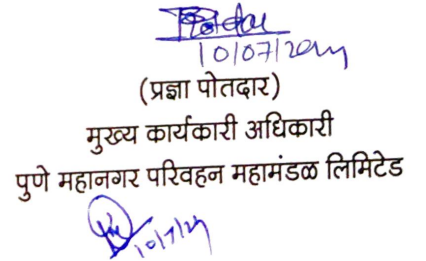 10/07/20
(प्रज्ञा पोतदार)
मुख्य कार्यकारी अधिकारी
पुणे महानगर परिवहन महामंडळ लिमिटेड
10/7/